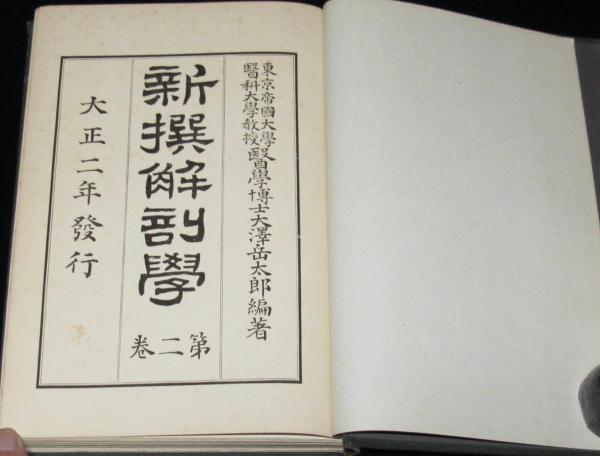 東京帝國大學
醫科大學教授
醫學博士大澤岳太郎編著
新撰解剖學
第二卷
大正二年發行